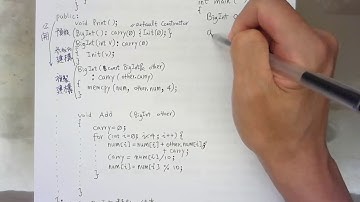 public:
void Print(); default Constructor
BigInt(): carry(0) {Init(0);}
BigInt(int v): carry(0)
{ Init(v);
}
BigInt(const BigInt& other)
: carry(other.carry)
{ memcpy(num, other.num, 4);
}
void Add (BigInt other)
{ carry=0;
for (int i=0; i<4; i++) {
num[i] = num[i] + other.num[i]
+ carry;
carry = num[i]/10;
num[i] = num[i] % 10;
}
int main(
{
BigInt a
a